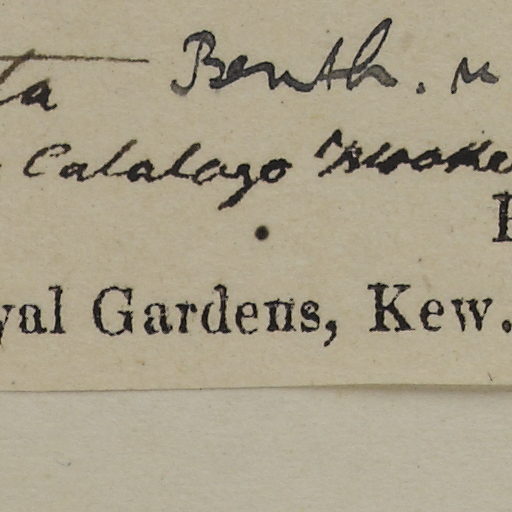 ta Benth. n
Catalago
yal Gardens, Kew.